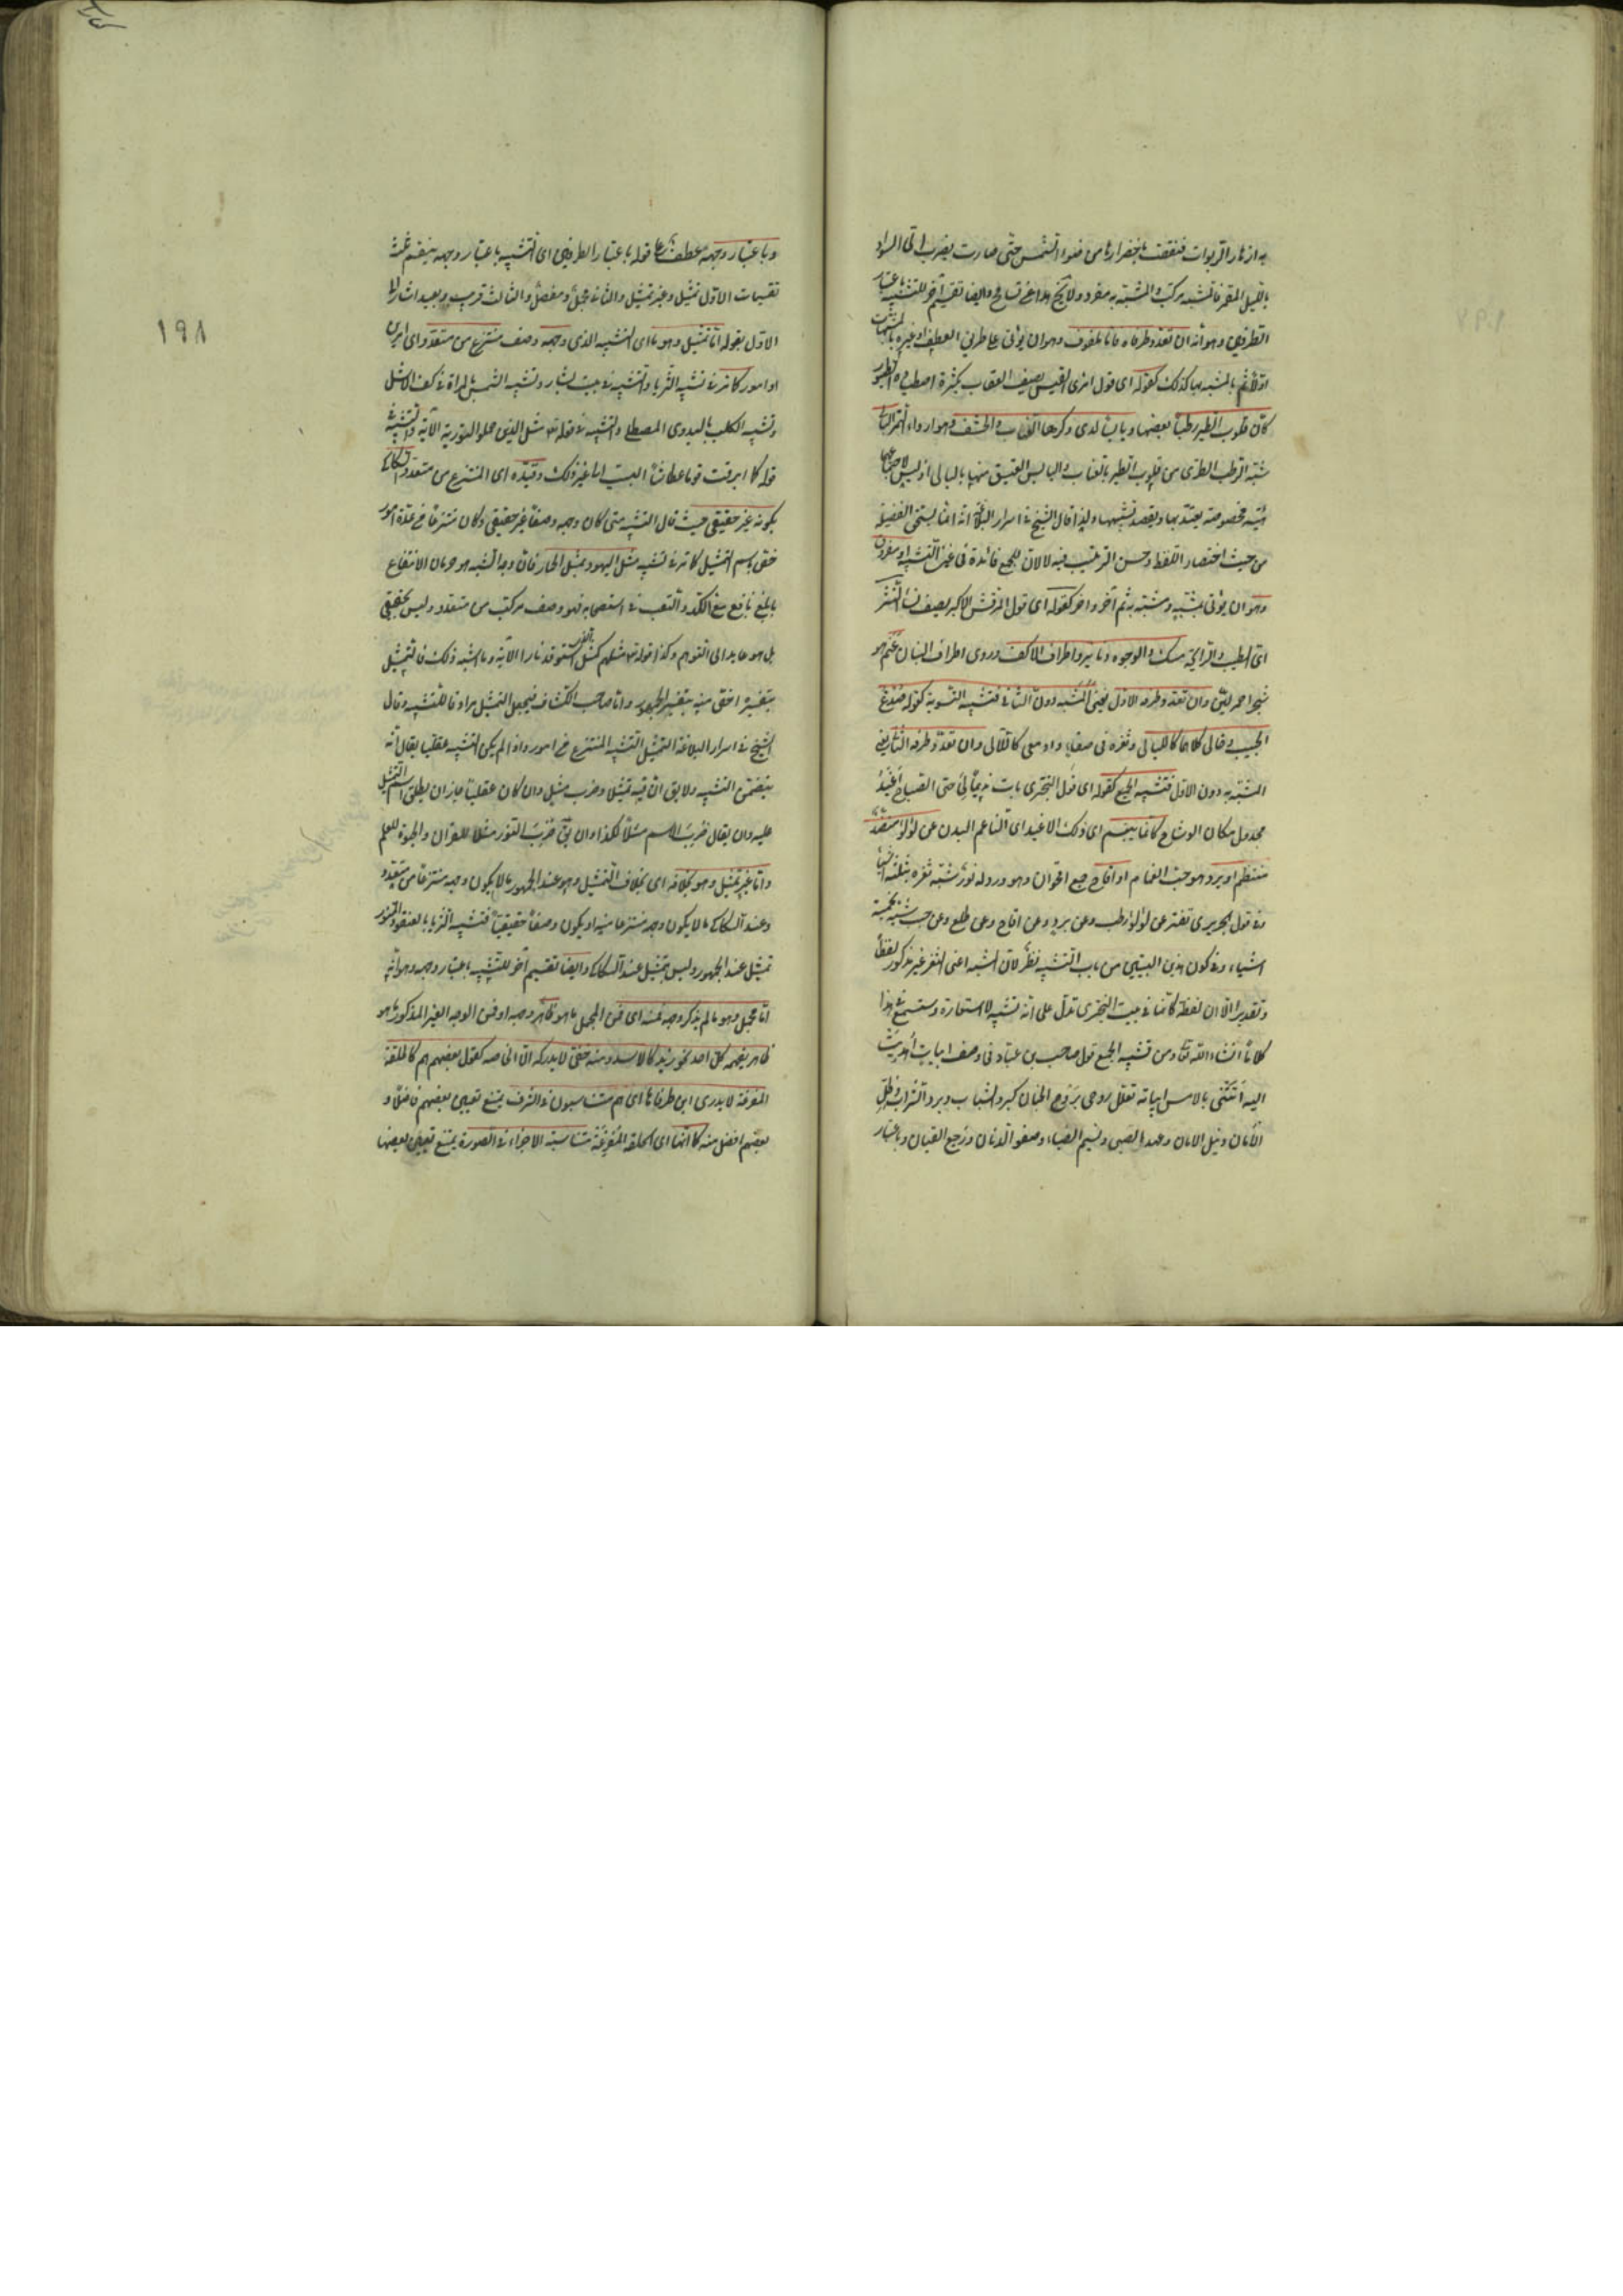 به ازهار الربوات فنقصت باخضرارها من ضوء الشمس حتى صارت يضرب الى السواد
بالليل المقمر فالمشبه مركب والمشبه به مفرد ولا يخ هذا عن تسامح وايضا تقسيم آخر للتشبيه باعتبار
الطرفين وهو انه ان تعدد طرفاه فاما ملفوف وهو ان يؤتى على طريق العطف او غيره بالمشبهات
اولا ثم بالمشبه بها كذلك كقوله اى قول امرئ القيس يصف العقاب بكثرة اصطياده الطيور
كأن قلوب الطير رطبا بعضها ويابسا لدى وكرها العناب والحشف وهو اردا التمر البالى
شبه الرطب الطرى من قلوب الطير بالعناب واليابس العتيق منها بالبالى اذ ليس لاجتماعها
هيئة مخصوصة يعتد بها ويقصد تشبيهها ولهذا قال الشيخ فى اسرار البلاغة انه انما يستحق الفضيلة
من حيث اختصار اللفظ وحسن الترتيب فيه لا لان للجمع فائدة فى عين التشبيه او مفروق
وهو ان يؤتى بمشبه ومشبه به ثم آخر وآخر كقوله اى قول المرقش الاكبر يصف نساء النشر
اى الطيب والرايحة مسك والوجوه دنانير واطراف الاكف وروى اطراف البنان عنم هو
شجر احمر لين وان تعدد طرفه الاول يعنى المشبه دون الثانى فتشبيه التسوية كقوله صدغ
الحبيب وحالى كلاهما كالليالى وثغره فى صفاء وادمعى كاللآلى وان تعدد طرفه الثانى يعنى
المشبه به دون الاول فتشبيه الجمع كقوله اى قول البحترى بات نديما لى حتى الصباح اغيد
مجدول مكان الوشاح كانما يبسم اى ذلك الاغيد اى الناعم البدن عن لؤلؤ منضد
منتظم او برد هو حب الغمام او اقاح جمع اقحوان وهو ورد له نور شبه ثغره بثلثة اشياء
وفى قول الحريرى تفتر عن لؤلؤ رطب وعن برد وعن اقاح وعن طلع وعن حبب شبه بخمسة
اشياء وفى كون هذين البيتين من باب التشبيه نظر لان المشبه اعنى الثغر غير مذكور لفظا
وتقديرا الا ان لفظة كانما فى بيت البحترى تدل على انه تشبيه لا استعارة وستسمع فى هذا
كلاما انشاء الله تعالى ومن تشبيه الجمع قول صاحب بن عباد فى وصف ابيات اهديت
اليه اتتنى بالامس ابياته تعلل روحى بروح الجنان كبرد الشباب وبرد الشراب وظل
الامان ونيل الامان وعهد الصبى ونسيم الصباء وصفو الدنان ورجع القيان وباعتبار
وباعتبار وجهه عطف على قوله باعتبار الطرفين اى التشبيه باعتبار وجهه ينقسم ثلث
تقسيمات الاول تمثيل وغير تمثيل والثانى مجمل ومفصل والثالث قريب وبعيد اشار الى
الاول بقوله اما تمثيل وهو ما اى التشبيه الذى وجهه وصف منتزع من متعدد اى امرين
او امور كما مر فى تشبيه الثريا والتشبيه فى بيت بشار وتشبيه الشمس بالمرآة فى كف الاشل
وتشبيه الكلب بالبدوى المصطلى والتشبيه فى قوله تعا مثل الذين حملوا التورية الآية والتشبيه فى
قوله كما ابرقت قوما عطاشا البيت الى غير ذلك وقيده اى المنتزع من متعدد السكاكى
بكونه غير حقيقى حيث قال التشبيه متى كان وجهه وصفا غير حقيقى وكان منتزعا من عدة امور
خص باسم التمثيل كما مر فى تشبيه مثل اليهود بمثل الحمار فان وجه الشبه هو حرمان الانتفاع
بابلغ نافع مع الكد والتعب فى استصحابه فهو وصف مركب من متعدد وليس بحقيقى
بل هو عايد الى التوهم وكذا قوله تعا مثلهم كمثل الذى استوقد نارا الآية وما اشبه ذلك فالتمثيل
بتفسيره اخص منه بتفسير الجمهور واما صاحب الكشاف فيجعل التمثيل مرادفا للتشبيه وقال
الشيخ فى اسرار البلاغة التمثيل التشبيه المنتزع من امور واذا لم يكن التشبيه عقليا يقال انه
يتضمن التشبيه ولا يقال ان فيه تمثيلا وضرب مثل وان كان عقليا جاز ان يطلق اسم التمثيل
عليه وان يقال ضرب الاسم مثلا لكذا وان يق ضرب النور مثلا للقرآن والحيوة للعلم
واما غير تمثيل وهو بخلافه اى بخلاف التمثيل وهو عند الجمهور ما لا يكون وجهه منتزعا من متعدد
وعند السكاكى ما لا يكون وجهه منتزعا منه او يكون وصفا حقيقيا فتشبيه الثريا بالعنقود المنور
تمثيل عند الجمهور وليس بتمثيل عند السكاكى وايضا تقسيم آخر للتشبيه باعتبار وجهه وهو انه
اما مجمل وهو ما لم يذكر وجهه فمنه اى فمن المجمل ما هو ظاهر وجهه او فمن الوجه الغير المذكور ما هو
ظاهر يفهمه كل احد نحو زيد كالاسد ومنه خفى لا يدركه الا الخاصة كقول بعضهم هم كالحلقة
المفرغة لا يدرى اين طرفاها اى هم متناسبون فى الشرف يمتنع تعيين بعضهم فاضلا و
بعضهم افضل منه كما انها اى الحلقة المفرغة متناسبة الاجزاء فى الصورة يمتنع تعيين بعضها
١٩٨